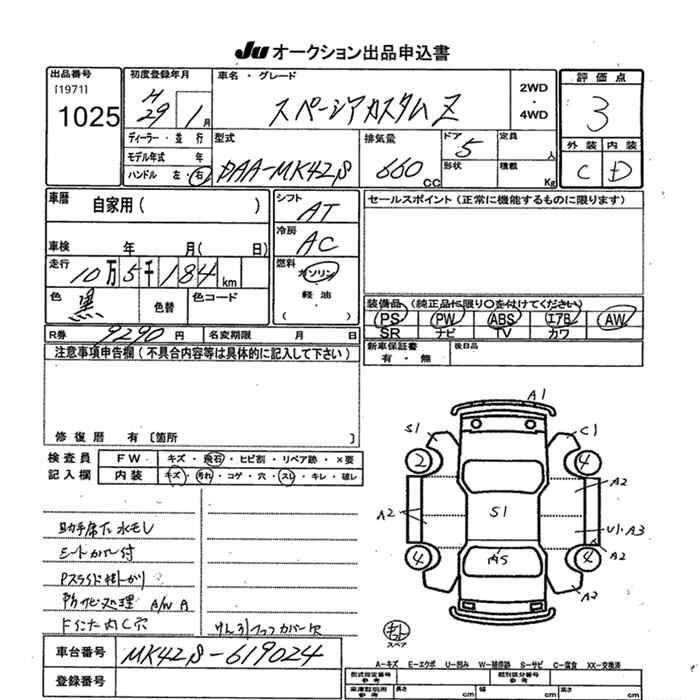 Ju オークション出品申込書
出品番号
[1971]
1025
初度登録年月
H 29 1月
ディーラー・並行
モデル年式 年
ハンドル 左・右
車名・グレード
スペーシアカスタムZ
2WD
・
4WD
型式
DAA-MK42S
排気量
660 CC
ドア
5
形状
定員
人
積載
Kg
評価点
3
外装 内装
C D
車歴
自家用( )
車検 年 月( 日)
走行
10万5千184km
色
黒
色替
色コード
シフト
AT
冷房
AC
燃料
ガソリン
軽油
( )
セールスポイント(正常に機能するものに限ります)
装備品(純正品に限り○を付けてください)
PS PW ABS エアB AW
SR ナビ TV カワ
R券 9290円
名変期限 月 日
新車保証書
有・無
後日品
注意事項申告欄(不具合内容等は具体的に記入して下さい)
修復歴 有〔箇所 〕
検査員
記入欄
FW キズ・飛石・ヒビ割・リペア跡・×要
内装 キズ・汚れ・コゲ・穴・スレ・キレ・破レ
助手席下水モレ
シートカバー付
Pスライド掛かり
防サビ処理 A/W A
けん引フックカバー欠
車台番号
MK42S-619024
登録番号
A1
S1
C1
2
4
A2
A2
S1
U1・A3
A2
4
AS
4
A2
スペア
A-キズ E-エクボ U-凹み W-補修跡 S-サビ C-腐食 XX-交換済
型式指定番号
参考
類別区分番号
参考
車庫証明用
参考
長さ cm
幅 cm
高さ cm